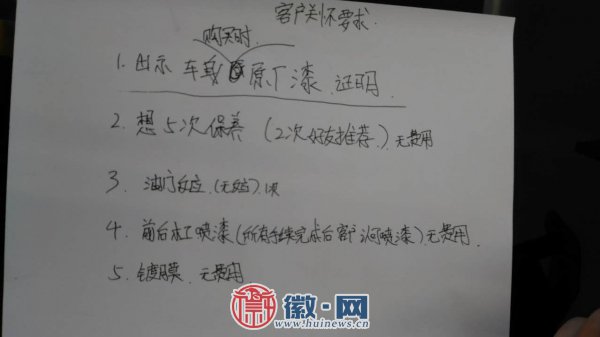 客户关怀要求.
购买时
1. 出示 车身 原厂漆 证明.
2. 想5次保养 (2次好友推荐.) 无费用
3. 油门 (无效). 1次
4. 前后杠喷漆 (所有手续完成后客户 喷漆) 无费用.
5. 镀膜. 无费用
徽·网
www.huinews.cn